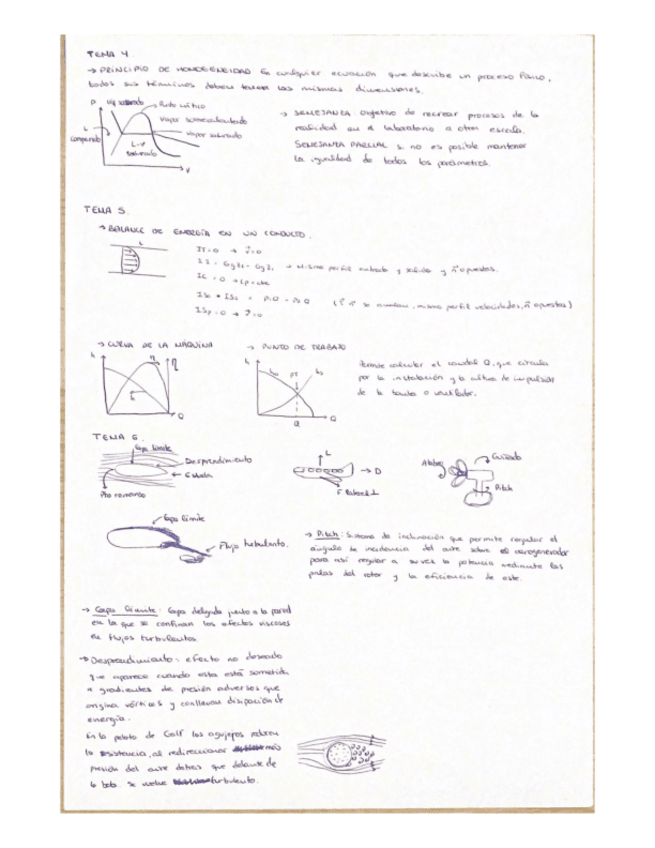 TEMA 4.
→ PRINCIPIO DE HOMOGENEIDAD En cualquier ecuación que describe un proceso físico,
todos sus términos deben tener las mismas dimensiones.
P
líq saturado
Punto crítico
Vapor sobrecalentado
vapor saturado
L
comprimido
L-V
saturado
V
→ SEMEJANZA objetivo de recrear procesos de la
realidad en el laboratorio a otra escala.
SEMEJANZA PARCIAL si no es posible mantener
la igualdad de todos los parámetros.
TEMA 5.
→ BALANCE DE ENERGÍA EN UN CONDUCTO.
L
→ Mismo perfil entrada y salida y n opuestas.
mismo perfil velocidades, n opuestas)
→ CURVA DE LA MÁQUINA
h
η
Q
→ PUNTO DE TRABAJO
h
PT
Q
Q
Permite calcular el caudal Q, que circula
por la instalación y la altura de impulsión
de la bomba o ventilador.
TEMA 6.
Capa límite
Desprendimiento
← Estela
Pto remanso
L
→ D
Alabes
Guiado
Pitch
Capa límite
Flujo turbulento.
→ Pitch: Sistema de inclinación que permite regular el
ángulo de incidencia del aire sobre el aerogenerador
para así regular a su vez la potencia mediante las
palas del rotor y la eficiencia de este.
→ Capa límite: Capa delgada junto a la pared
en la que se confinan los efectos viscosos
en flujos turbulentos
→ Desprendimiento: efecto no deseado
que aparece cuando esta está sometida
a gradientes de presión adversos que
origina vórtices y conllevan disipación de
energía.
En la pelota de Golf los agujeros reducen
la resistencia, al redireccionar más
presión del aire detrás que delante de
la bola se vuelve turbulento.